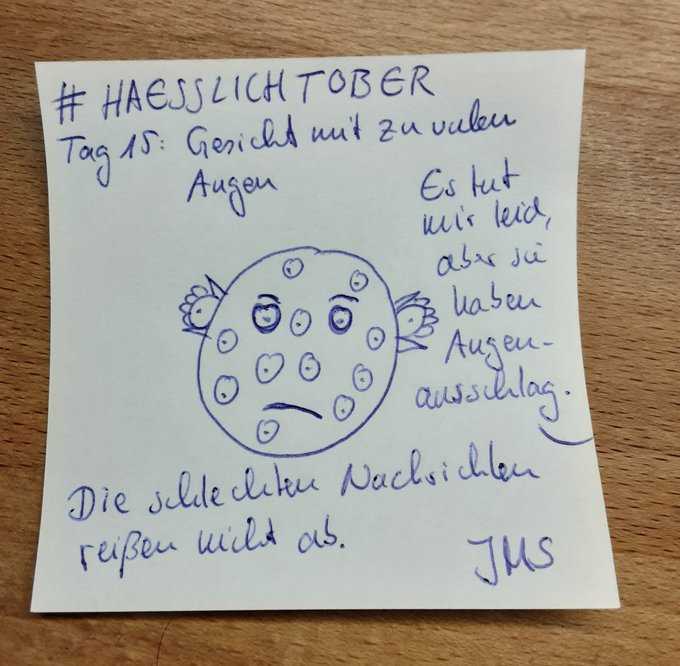 # HAESSLICHTOBER
Tag 15: Gesicht mit zu vielen
Augen
Es tut
mir leid,
aber sie
haben
Augen-
ausschlag.
Die schlechten Nachrichten
reißen nicht ab.
JMS